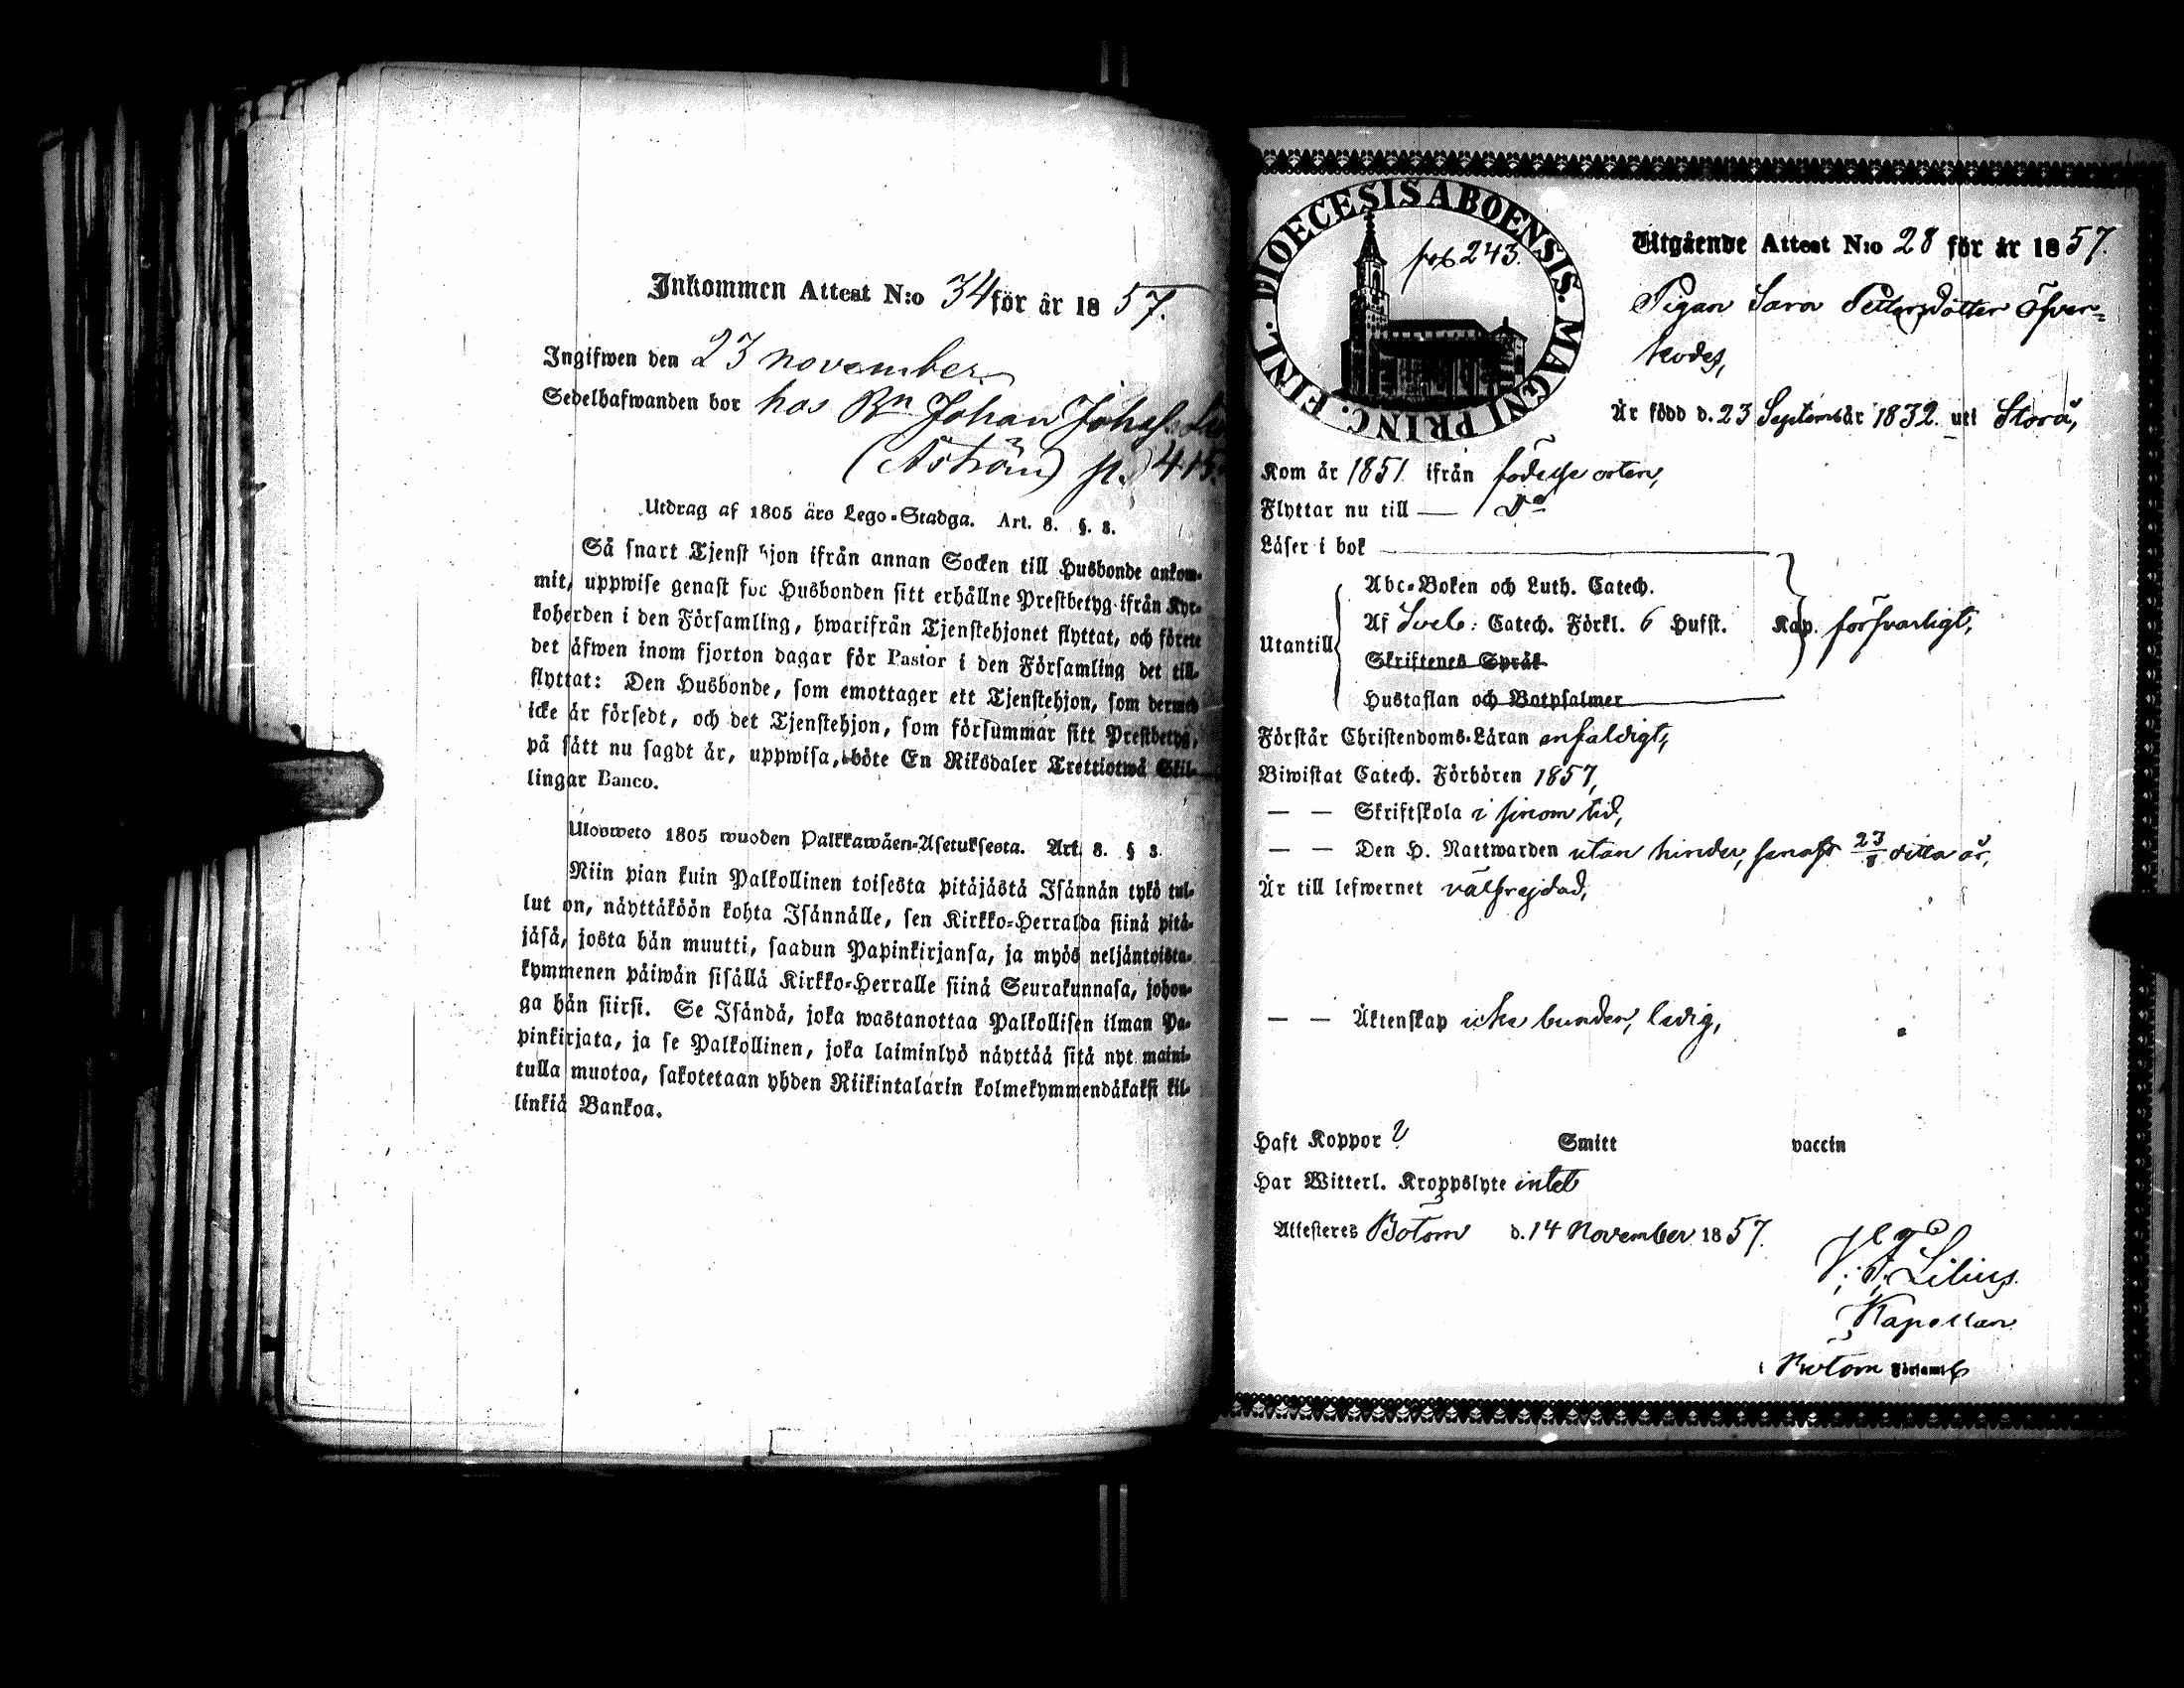 Inkommen Attest N:o 34 för år 1857.
Ingifwen den 23 november
Sedelhafwanden bor hos Bn Johan Johss
(Åström) p. 415.
Utdrag af 1805 års Lego-Stadga. Art. 8. §. 8.
Så snart Tjenst hjon ifrån annan Socken till Husbonde ankom-
mit, uppwise genast for Husbonden sitt erhållne Prestbetyg ifrån Kyr-
koherden i den Församling, hwarifrån Tjenstehjonet flyttat, och förete
det äfwen inom fjorton dagar för Pastor i den Församling det till-
flyttat: Den Husbonde, som emottager ett Tjenstehjon, som dermed
icke är försedt, och det Tjenstehjon, som försummar sitt Prestbetyg,
på sätt nu sagdt är, uppwisa, böte En Riksdaler Trettiotwå Skil-
lingar Banco.
Ulosweto 1805 wuoden Palkkawäen-Asetuksesta. Art. 8. § 8.
Niin pian kuin Palkollinen toisesta pitäjästä Isännän tykö tul-
lut on, näyttäköön kohta Isännälle, sen Kirkko-Herralda siinä pitä-
jäsä, josta hän muutti, saadun Papinkirjansa, ja myös neljäntoista-
kymmenen päiwän sisällä Kirkko-Herralle siinä Seurakunnasa, johon-
ga hän siirsi. Se Isändä, joka wastanottaa Palkollisen ilman Pa-
pinkirjata, ja se Palkollinen, joka laiminlyö näyttää sitä nyt maini-
tulla muotoa, sakotetaan yhden Riikintalarin kolmekymmendäkaksi kil-
linkiä Bankoa.
FINL. DIOECESIS ABOENSIS. MAGNI PRINC.
243.
Utgående Attest N:o 28 för år 1857.
Pigan Sara Pettersdotter Öfver-
kodes,
Är född d. 23 Septemb år 1832. uti Storå,
Kom år 1851 ifrån födelse orten,
Flyttar nu till — Do
Läser i bok
Abc-Boken och Luth. Catech.
Utantill Af Sveb: Catech. Förkl. 6 Hufst. Kap. försvarligt,
Skriftenes Språk
Hustaflan och Botpsalmer
Förstår Christendoms-Läran enfaldigt,
Biwistat Catech. Förhören 1857,
— — Skriftskola i sinom tid,
— — Den H. Nattwarden utan hinder, senast 23/8 detta år,
Är till lefwernet välfrejdad,
— — Äktenskap icke bunden, ledig,
Haft Koppor ? Smitt vaccin
Har Witterl. Kroppslyte intet
Attesteras Bötom d. 14 November 1857.
Lilius.
Kapellan
i Bötom Församl